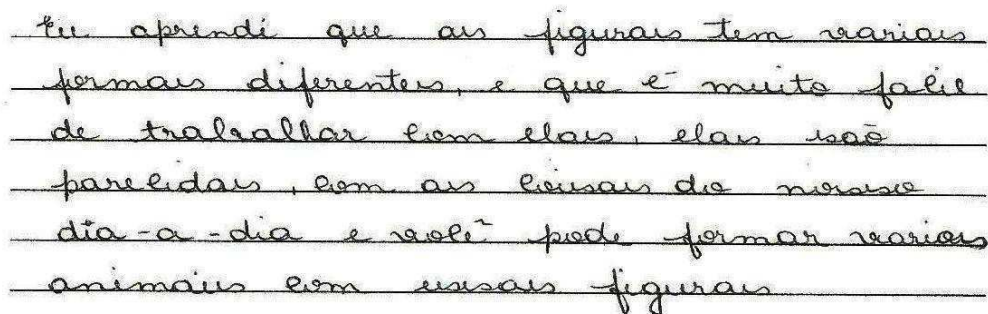 Eu aprendi que as figuras tem varias
formas diferentes, e que é muito facil
de trabalhar com elas, elas são
parecidas, com as coisas do nosso
dia-a-dia e você pode formar varios
animais com essas figuras